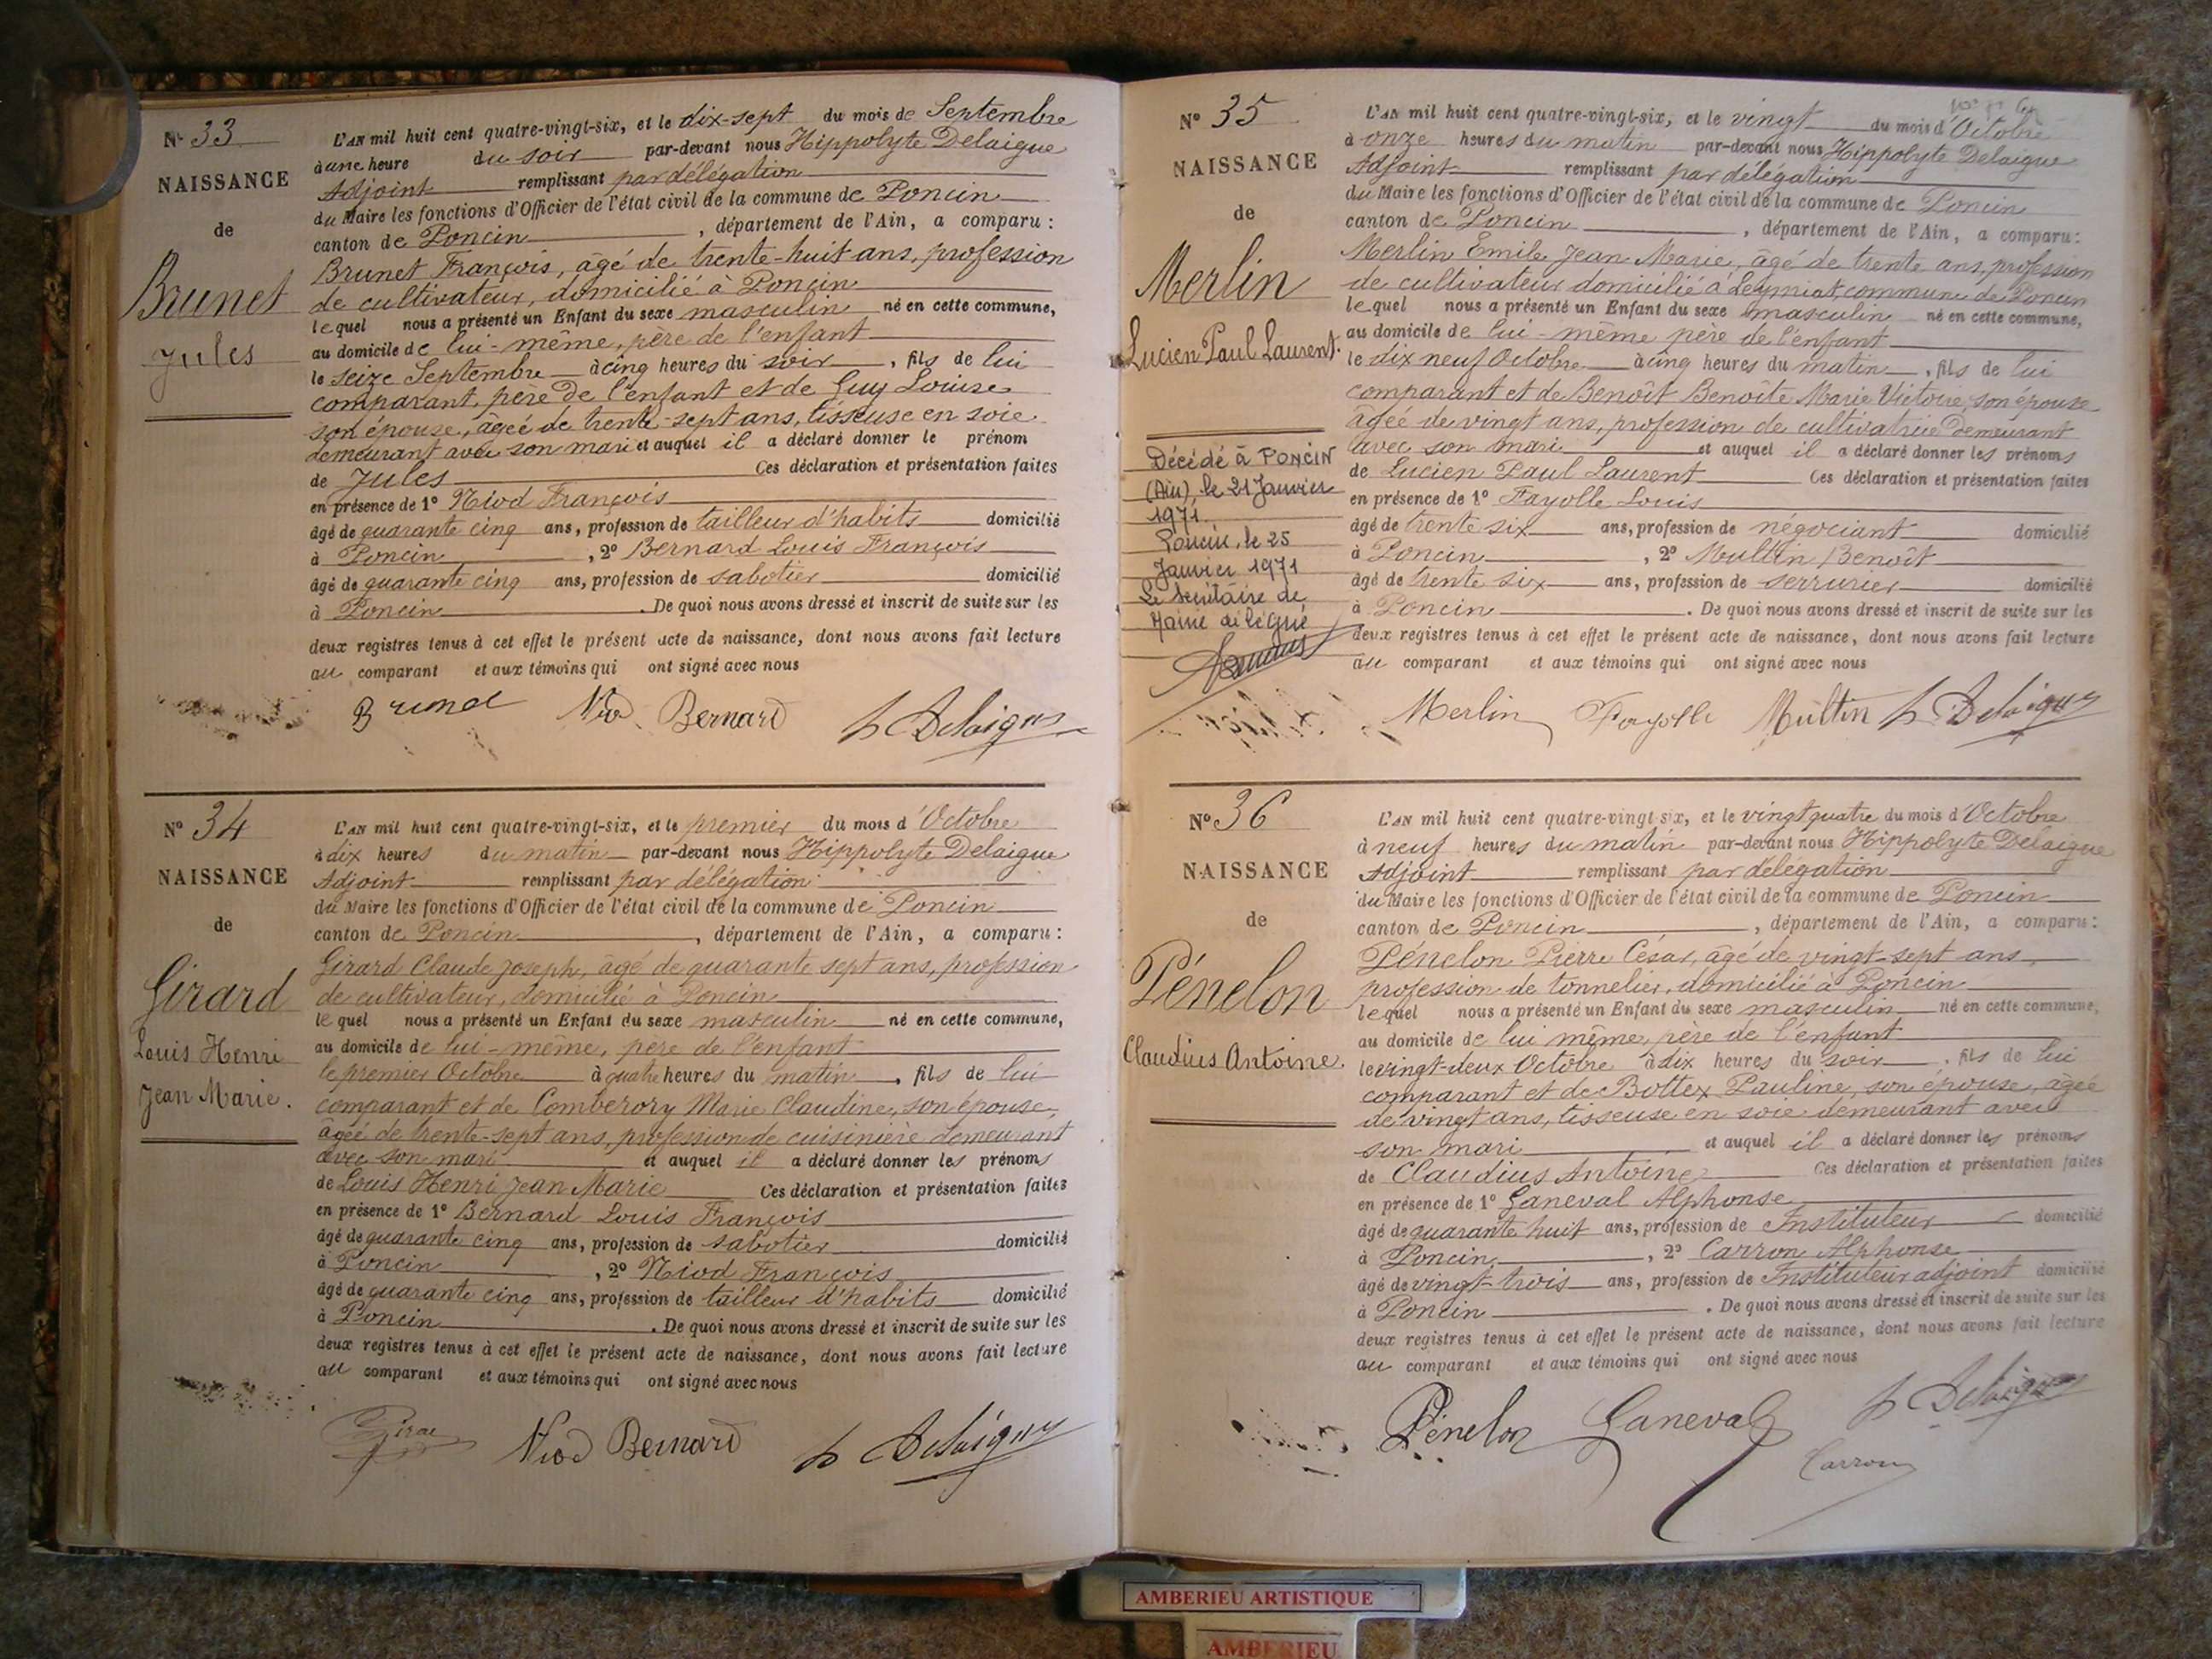 Nº 33
NAISSANCE
de
Brunet
Jules
L'AN mil huit cent quatre-vingt-six, et le dix-sept du mois de Septembre
à une heure du soir par-devant nous Hippolyte Delaigue
Adjoint remplissant par délégation
du Maire les fonctions d'Officier de l'état civil de la commune de Poncin
canton de Poncin, département de l'Ain, a comparu :
Brunet François, âgé de trente-huit ans, profession
de cultivateur, domicilié à Poncin
lequel nous a présenté un Enfant du sexe masculin né en cette commune,
au domicile de lui-même, père de l'enfant
le seize Septembre à cinq heures du soir, fils de lui
comparant, père de l'enfant et de Guy Louise
son épouse, âgée de trente-sept ans, tisseuse en soie
demeurant avec son mari et auquel il a déclaré donner le prénom
de Jules Ces déclaration et présentation faites
en présence de 1º Niod François
âgé de quarante cinq ans, profession de tailleur d'habits domicilié
à Poncin, 2º Bernard Louis François
âgé de quarante cinq ans, profession de sabotier domicilié
à Poncin. De quoi nous avons dressé et inscrit de suite sur les
deux registres tenus à cet effet le présent acte de naissance, dont nous avons fait lecture
au comparant et aux témoins qui ont signé avec nous
Brunet Niod Bernard h Delaigue
Nº 34
NAISSANCE
de
Girard
Louis Henri
Jean Marie.
L'AN mil huit cent quatre-vingt-six, et le premier du mois d'Octobre
à dix heures du matin par-devant nous Hippolyte Delaigue
Adjoint remplissant par délégation
du Maire les fonctions d'Officier de l'état civil de la commune de Poncin
canton de Poncin, département de l'Ain, a comparu :
Girard Claude Joseph, âgé de quarante sept ans, profession
de cultivateur, domicilié à Poncin
lequel nous a présenté un Enfant du sexe masculin né en cette commune,
au domicile de lui-même, père de l'enfant
le premier Octobre à quatre heures du matin, fils de lui
comparant et de Comberory Marie Claudine, son épouse,
agée de trente-sept ans, profession de cuisinière demeurant
avec son mari et auquel il a déclaré donner les prénoms
de Louis Henri Jean Marie Ces déclaration et présentation faites
en présence de 1º Bernard Louis François
âgé de quarante cinq ans, profession de sabotier domicilié
à Poncin, 2º Niod François
âgé de quarante cinq ans, profession de tailleur d'habits domicilié
à Poncin. De quoi nous avons dressé et inscrit de suite sur les
deux registres tenus à cet effet le présent acte de naissance, dont nous avons fait lecture
au comparant et aux témoins qui ont signé avec nous
Girard Niod Bernard h Delaigue
Nº 35
NAISSANCE
de
Merlin
Lucien Paul Laurent.
Décédé à PONCIN
(Ain), le 21 Janvier
1971.
Poncin, le 25
Janvier 1971
Le Secrétaire de
Mairie délégué
L'AN mil huit cent quatre-vingt-six, et le vingt du mois d'Octobre
à onze heures du matin par-devant nous Hippolyte Delaigue
Adjoint remplissant par délégation
du Maire les fonctions d'Officier de l'état civil de la commune de Poncin
canton de Poncin, département de l'Ain, a comparu :
Merlin Emile Jean Marie, âgé de trente ans, profession
de cultivateur domicilié à Leymiat, commune de Poncin
lequel nous a présenté un Enfant du sexe masculin né en cette commune,
au domicile de lui-même père de l'enfant
le dix neuf Octobre à cinq heures du matin, fils de lui
comparant et de Benoît Benoîte Marie Victoire, son épouse
âgée de vingt ans, profession de cultivatrice demeurant
avec son mari et auquel il a déclaré donner les prénoms
de Lucien Paul Laurent Ces déclaration et présentation faites
en présence de 1º Fayolle Louis
âgé de trente six ans, profession de négociant domicilié
à Poncin, 2º Multin Benoît
âgé de trente six ans, profession de serrurier domicilié
à Poncin. De quoi nous avons dressé et inscrit de suite sur les
deux registres tenus à cet effet le présent acte de naissance, dont nous avons fait lecture
au comparant et aux témoins qui ont signé avec nous
Merlin Fayolle Multin h Delaigue
Nº 36
NAISSANCE
de
Pénelon
Claudius Antoine.
L'AN mil huit cent quatre-vingt six, et le vingt quatre du mois d'Octobre
à neuf heures du matin par-devant nous Hippolyte Delaigue
Adjoint remplissant par délégation
du Maire les fonctions d'Officier de l'état civil de la commune de Poncin
canton de Poncin, département de l'Ain, a comparu :
Pénelon Pierre César, âgé de vingt-sept ans,
profession de tonnelier, domicilié à Poncin
lequel nous a présenté un Enfant du sexe masculin né en cette commune,
au domicile de lui même, père de l'enfant
le vingt-deux Octobre à dix heures du soir, fils de lui
comparant et de Bottex Pauline, son épouse, âgée
de vingt ans, tisseuse en soie demeurant avec
son mari et auquel il a déclaré donner les prénoms
de Claudius Antoine Ces déclaration et présentation faites
en présence de 1º Ganeval Alphonse
âgé de quarante huit ans, profession de Instituteur domicilié
à Poncin, 2º Carron Alphonse
âgé de vingt-trois ans, profession de Instituteur adjoint domicilié
à Poncin. De quoi nous avons dressé et inscrit de suite sur les
deux registres tenus à cet effet le présent acte de naissance, dont nous avons fait lecture
au comparant et aux témoins qui ont signé avec nous
Pénelon Ganeval h Delaigue
Carron
AMBERIEU ARTISTIQUE
AMBERIEU